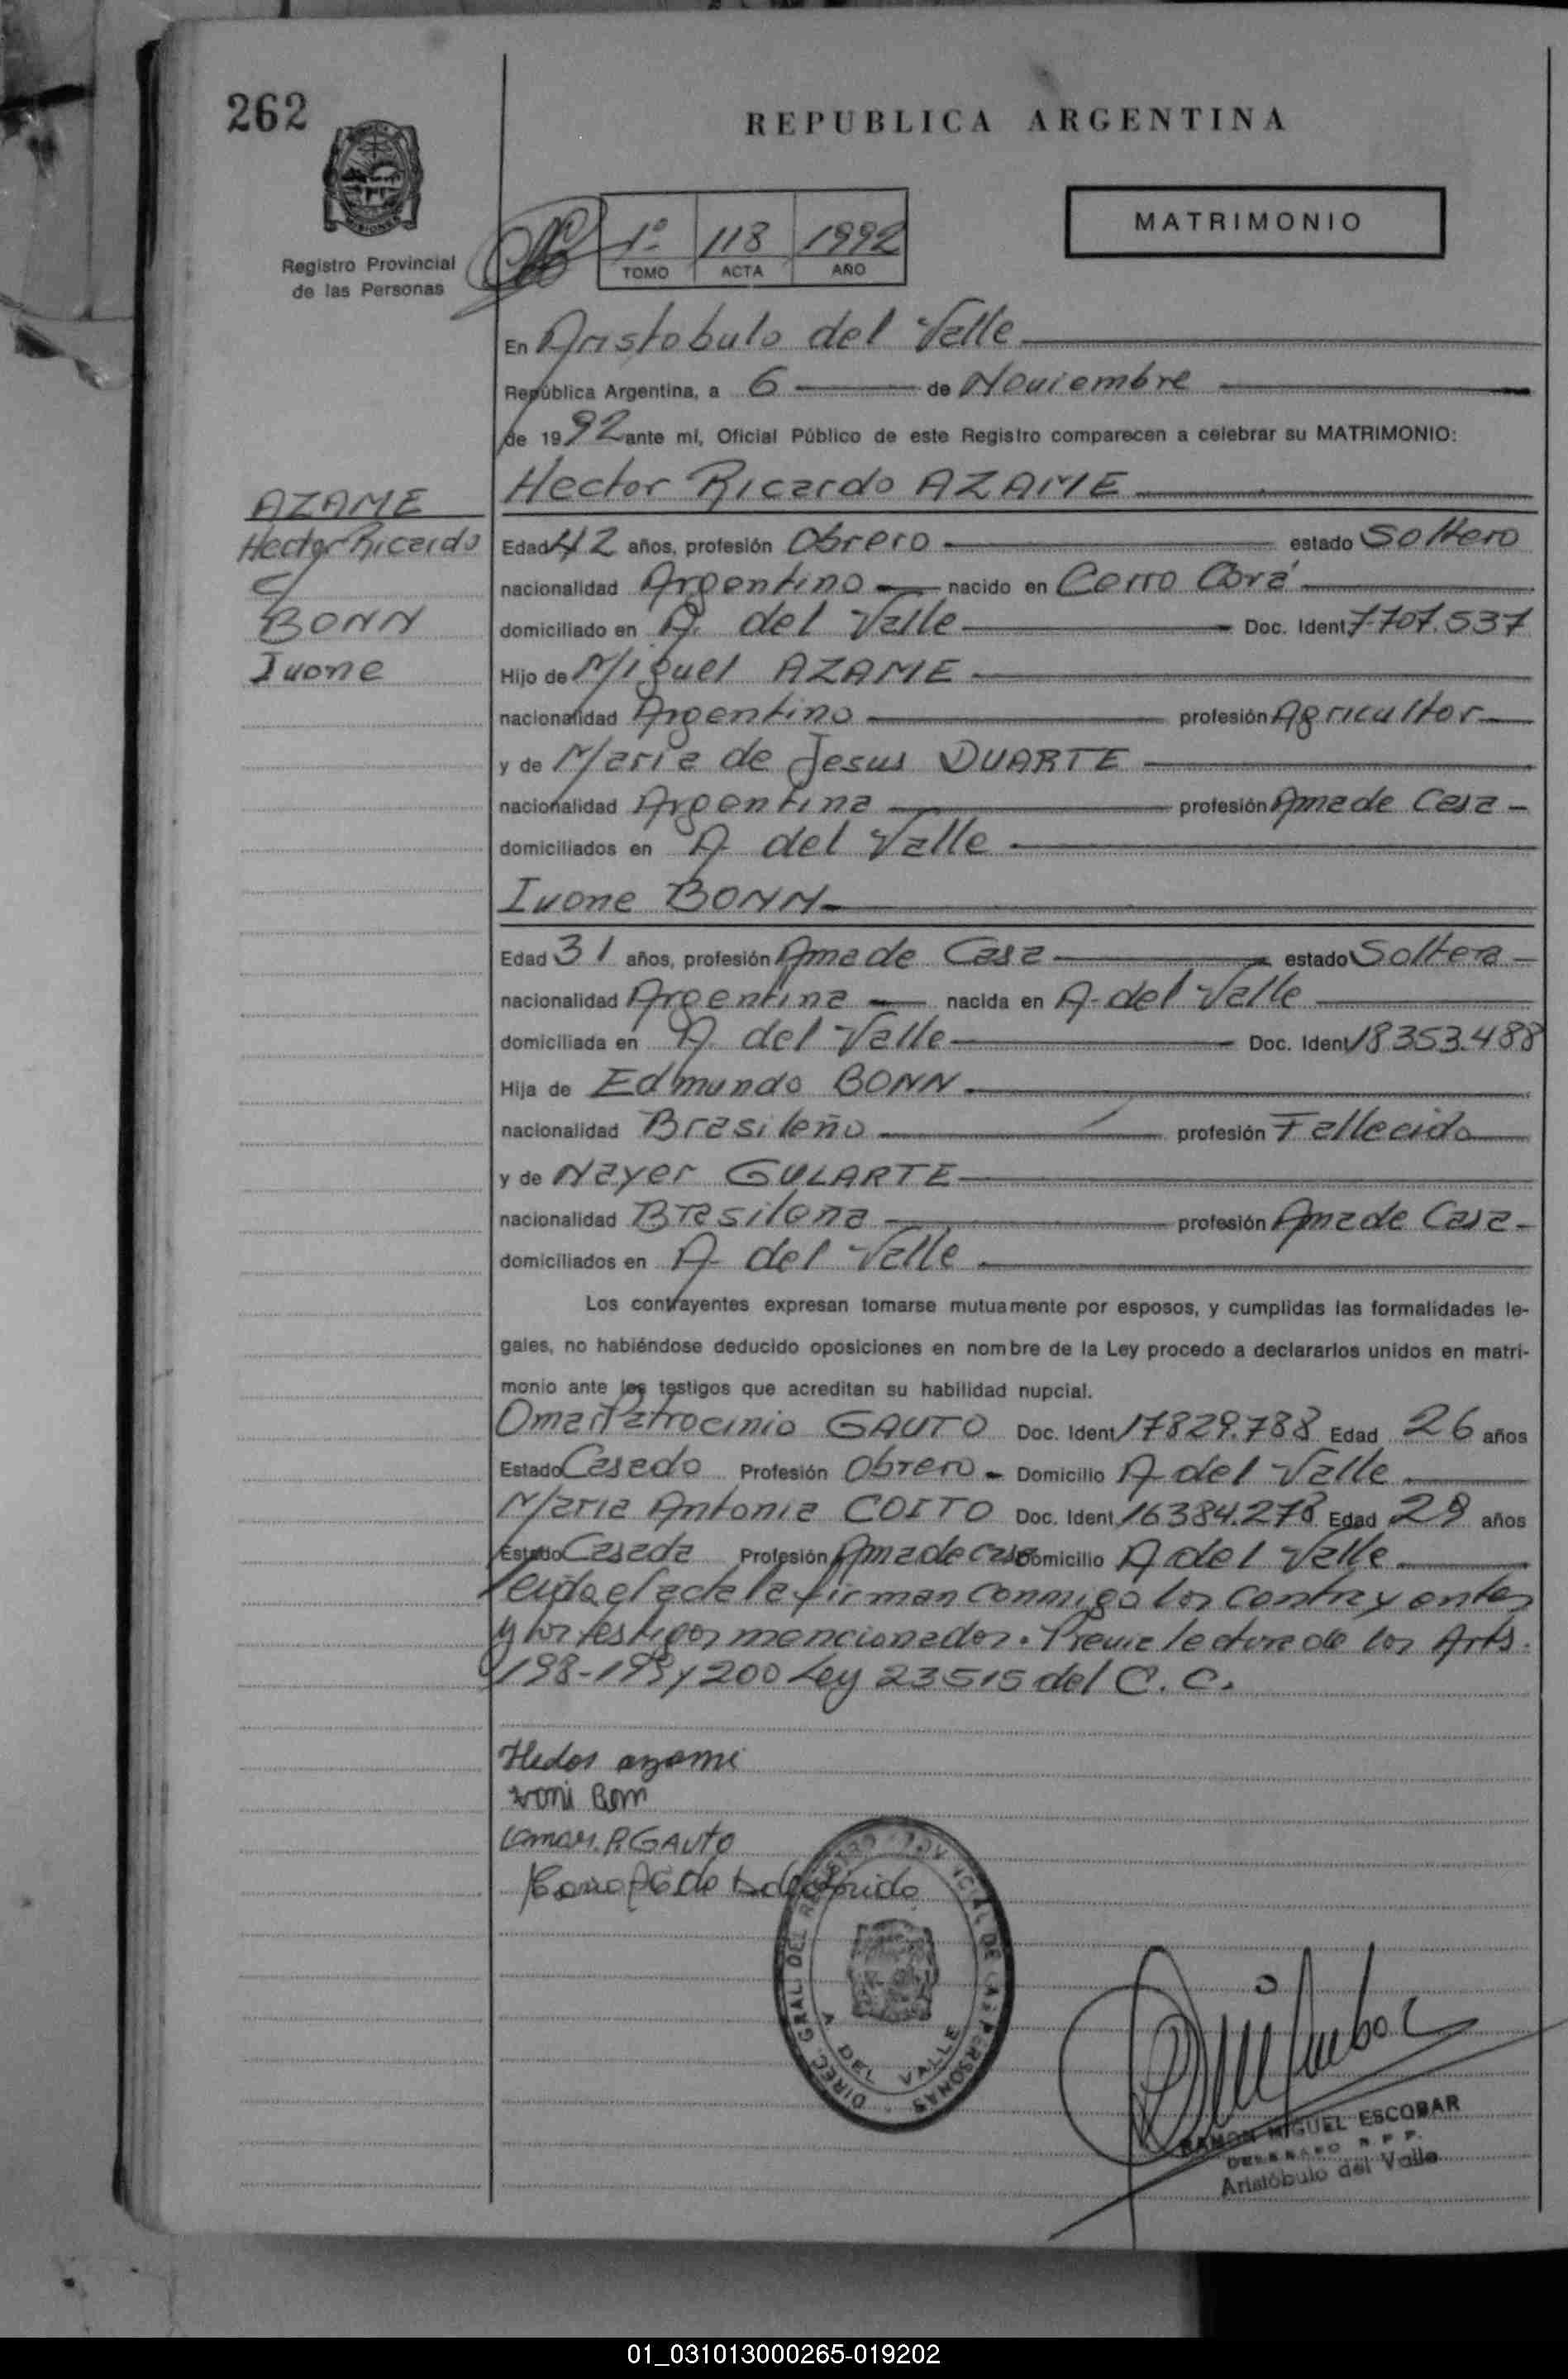 262
REPUBLICA ARGENTINA
MATRIMONIO
MISIONES
Registro Provincial
de las Personas
1º 118 1992
TOMO ACTA AÑO
En Aristobulo del Valle
República Argentina, a 6 de Noviembre
de 1992 ante mí, Oficial Público de este Registro comparecen a celebrar su MATRIMONIO:
Hector Ricardo AZAME
AZAME
Hector Ricardo
c/
BONN
Ivone
Edad 42 años, profesión Obrero estado Soltero
nacionalidad Argentino nacido en Cerro Corá
domiciliado en A. del Valle Doc. Ident. 7707.537
Hijo de Miguel AZAME
nacionalidad Argentino profesión Agricultor
y de Maria de Jesus DUARTE
nacionalidad Argentina profesión Ama de Casa
domiciliados en A del Valle
Ivone BONN
Edad 31 años, profesión Ama de Casa estado Soltera
nacionalidad Argentina nacida en A. del Valle
domiciliada en A. del Valle Doc. Ident. 18353.488
Hija de Edmundo BONN
nacionalidad Brasileño profesión Fallecido
y de Nayer GULARTE
nacionalidad Brasilena profesión Ama de Casa
domiciliados en A del Valle
Los contrayentes expresan tomarse mutuamente por esposos, y cumplidas las formalidades le-
gales, no habiéndose deducido oposiciones en nombre de la Ley procedo a declararlos unidos en matri-
monio ante los testigos que acreditan su habilidad nupcial.
Omar Patrocinio GAUTO Doc. Ident. 17829.788 Edad 26 años
Estado Casado Profesión Obrero Domicilio A del Valle
Maria Antonia COITO Doc. Ident. 16384.278 Edad 29 años
Estado Casada Profesión Ama de casa Domicilio A del Valle
leida el acta la firman conmigo los contrayentes
y los testigos mencionados. Previa lectura de los Arts.
198-199 y 200 Ley 23515 del C. C.
Hedor azame
Ivoni Bom
Omar. P. GAuto
DIREC. GRAL. DEL REGISTRO PROVINCIAL DE LAS PERSONAS
A DEL VALLE
RAMON MIGUEL ESCOBAR
DELEGADO R. P. P.
Aristóbulo del Valle
01_031013000265-019202